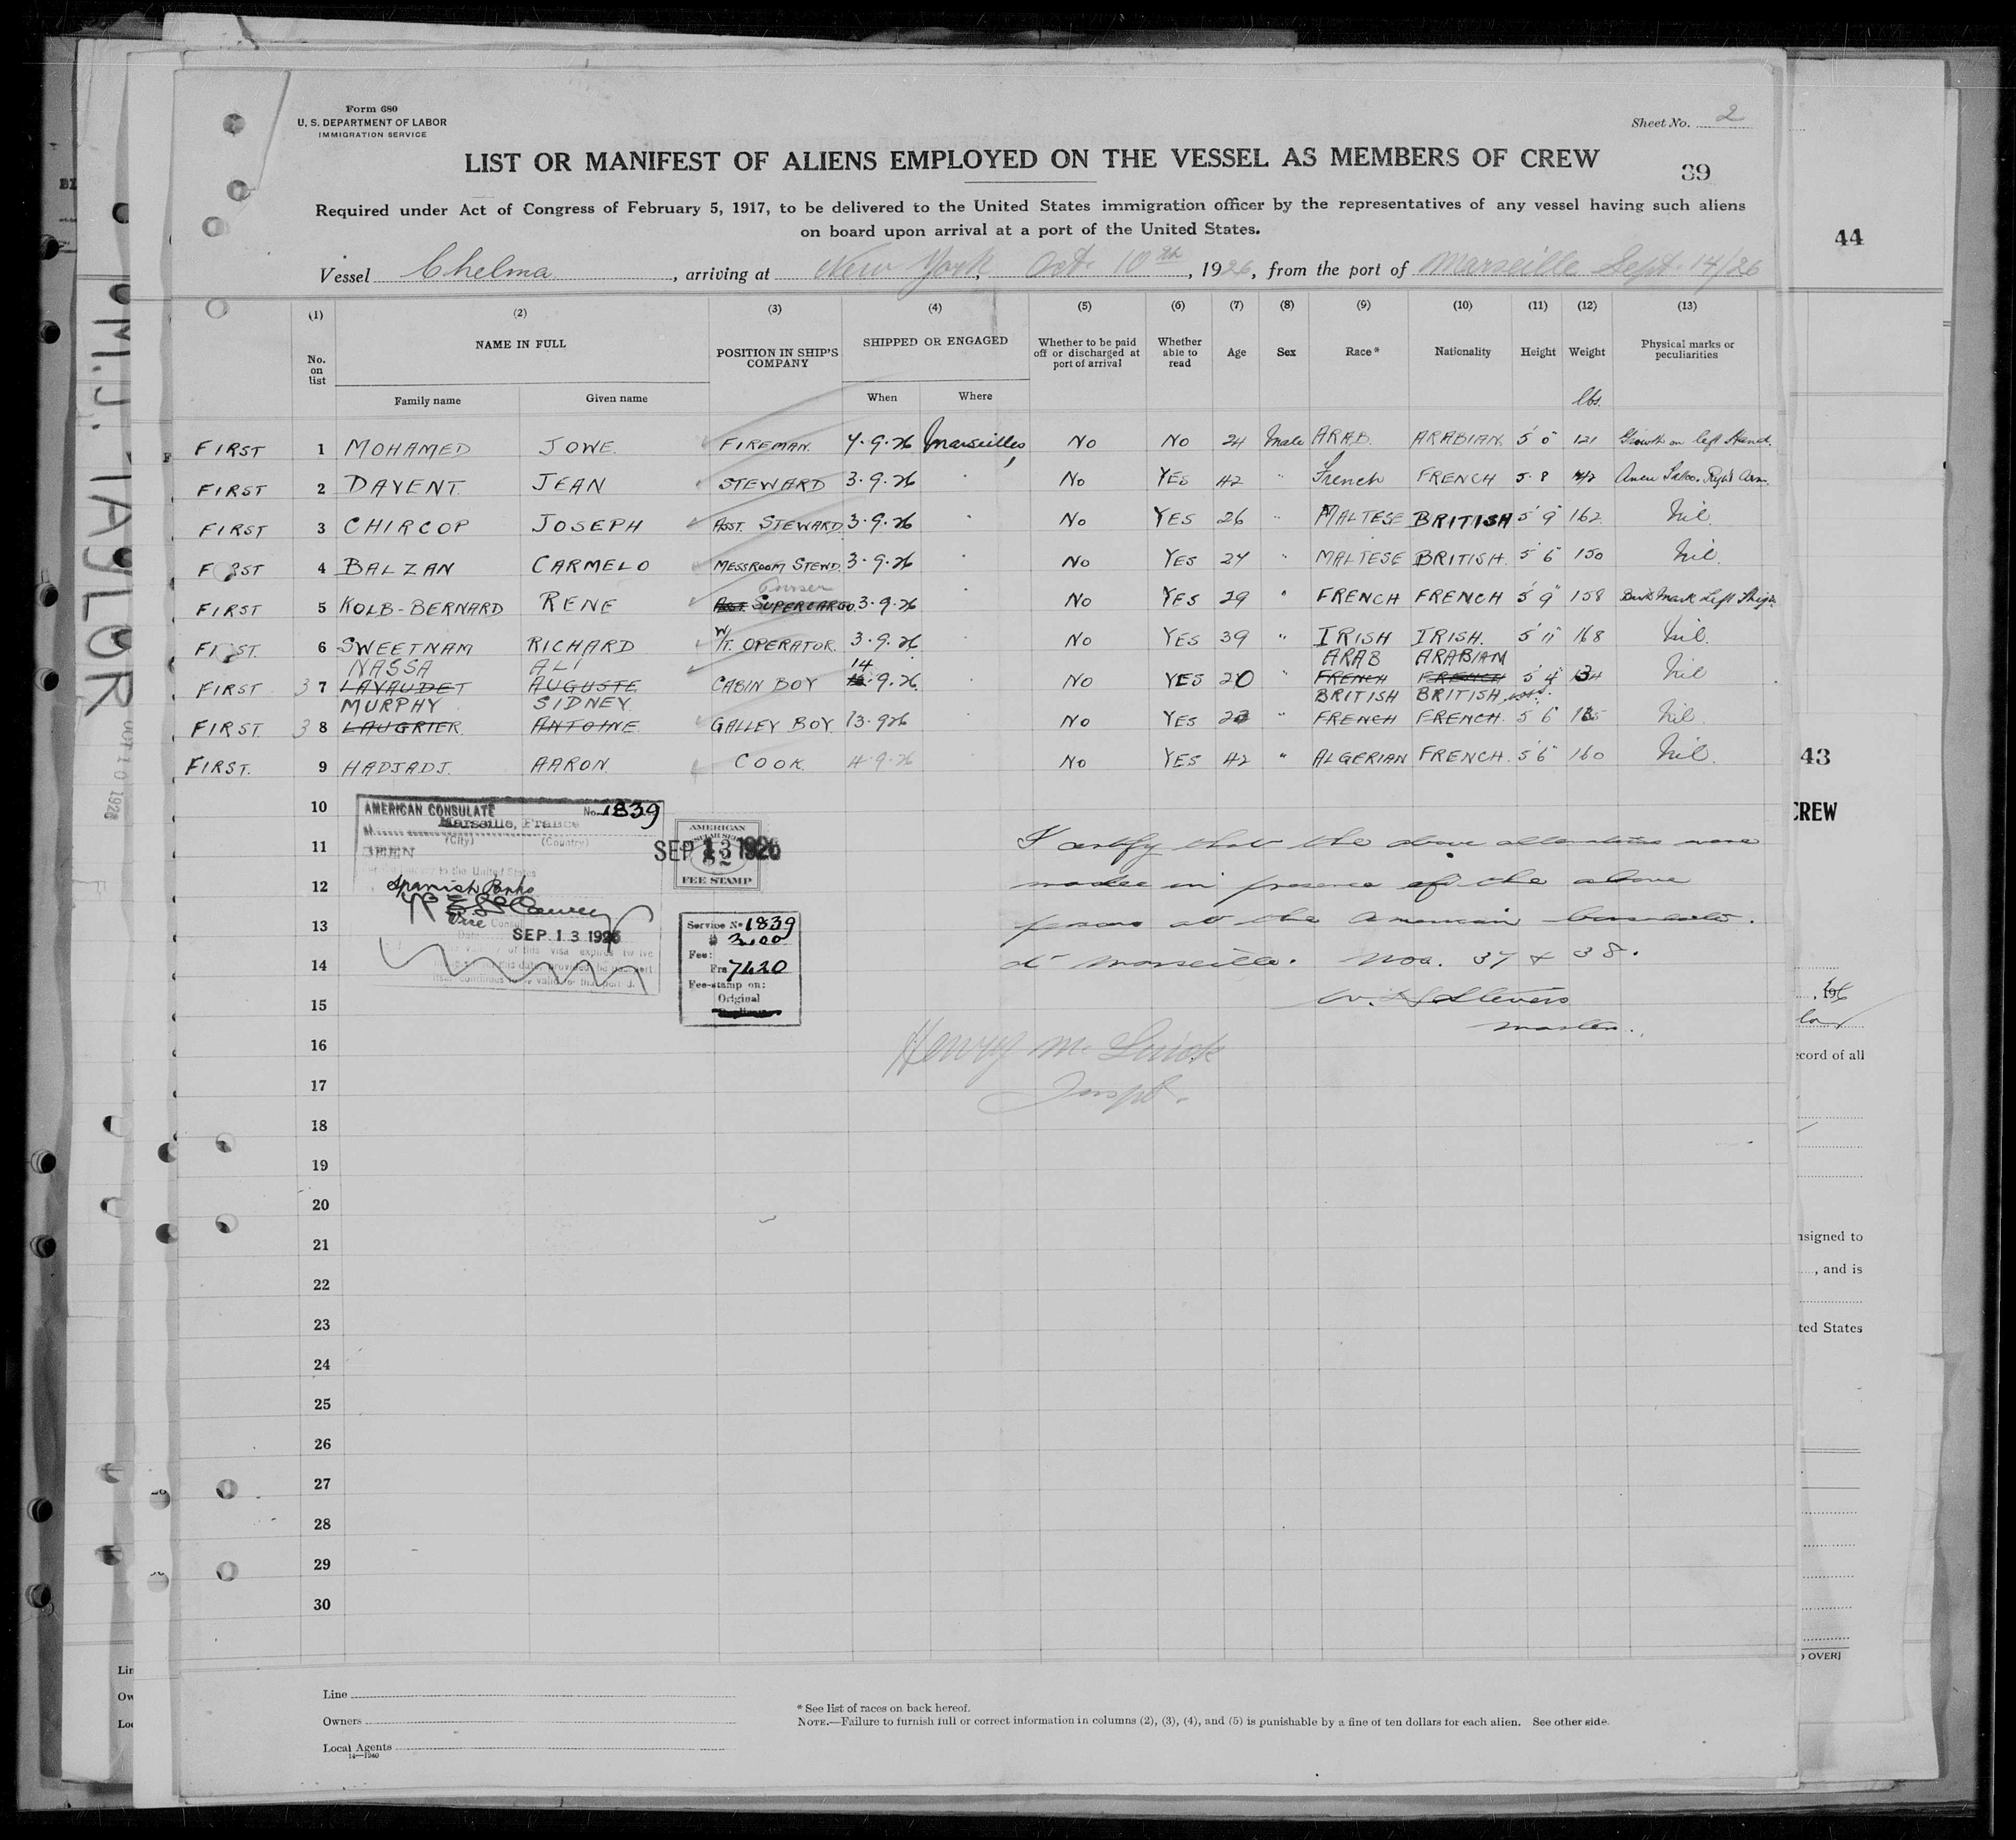 Form 680
U. S. DEPARTMENT OF LABOR
IMMIGRATION SERVICE
Sheet No. 2
LIST OR MANIFEST OF ALIENS EMPLOYED ON THE VESSEL AS MEMBERS OF CREW
39
Required under Act of Congress of February 5, 1917, to be delivered to the United States immigration officer by the representatives of any vessel having such aliens
on board upon arrival at a port of the United States.
44
Vessel Chelma, arriving at New York, Oct. 10th, 1926, from the port of Marseille Sept. 14/26
(1) (2) (3) (4) (5) (6) (7) (8) (9) (10) (11) (12) (13)
No. on list
NAME IN FULL
Family name Given name
POSITION IN SHIP'S COMPANY
SHIPPED OR ENGAGED
When Where
Whether to be paid off or discharged at port of arrival
Whether able to read
Age Sex Race* Nationality Height Weight
Physical marks or peculiarities
lbs.
FIRST 1 MOHAMED JOWE. FIREMAN. 4.9.26 Marseilles NO NO 24 Male ARAB. ARABIAN. 5'0" 121 Growth on left Hand.
FIRST 2 DAVENT. JEAN STEWARD 3.9.26 " NO YES 42 " French FRENCH 5.8 Right Arm.
FIRST 3 CHIRCOP JOSEPH ASST. STEWARD 3.9.26 " NO YES 26 " MALTESE BRITISH 5'9" 162 Nil.
FIRST 4 BALZAN CARMELO MESSROOM STEWD. 3.9.26 " NO YES 24 " MALTESE BRITISH. 5'6" 150 Nil.
Purser
FIRST 5 KOLB-BERNARD RENE ASST. SUPERCARGO 3.9.26 NO YES 29 " FRENCH FRENCH 5'9" 158 Mark Left Thigh.
FIRST. 6 SWEETNAM RICHARD W/T. OPERATOR. 3.9.26 " NO YES 39 " IRISH IRISH. 5'11" 168 Nil.
NASSA ALI 14 ARAB ARABIAN
FIRST 3 7 LAVAUDET AUGUSTE CABIN BOY .9.26. " NO YES 20 " FRENCH FRENCH 5'4" 134 Nil
MURPHY SIDNEY. BRITISH BRITISH
FIRST. 3 8 LAUGRIER. ANTOINE. GALLEY BOY 13.9.26 " NO YES " FRENCH FRENCH. 5'6" Nil.
FIRST. 9 HADJADJ. AARON. COOK 4.9.26 NO YES 42 " ALGERIAN FRENCH. 5'6" 160 Nil.
43
10
AMERICAN CONSULATE No. 1839
At Marseille, France
(City) (Country)
SEEN
to the United States
Spanish Ports
Vice Consul
SEP 13 1926
of this visa expires
this date, provided the passport
continues to be valid for that period.
AMERICAN
FEE STAMP
SEP 13 1926
Service No 1839
$ 3.00
Fee:
Frs
Fee-stamp on:
Original
Duplicate
CREW
11
12
13
14
15
I certify that the above alterations were
made in presence of the above
persons at the American Consulate.
at Marseille. Nos. 37 & 38.
Stevens
Master.
Henry M.
Inspt.
16
17
18
19
20
21
22
23
24
25
26
27
28
29
30
ecord of all
nsigned to
, and is
ted States
OVER]
M.J. TAYLOR
OCT 10 1926
Line
Owners
Local Agents
14—1240
* See list of races on back hereof.
NOTE.—Failure to furnish full or correct information in columns (2), (3), (4), and (5) is punishable by a fine of ten dollars for each alien. See other side.
Lin
Ow
Loc